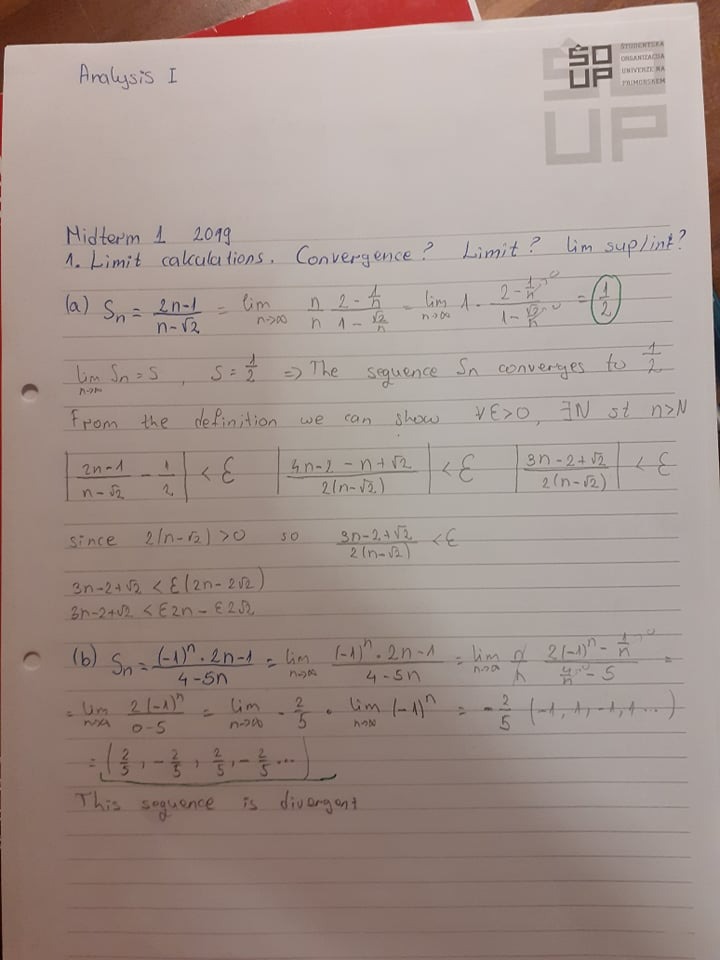 Analysis I
ŠO
UP
ŠTUDENTSKA
ORGANIZACIJA
UNIVERZE NA
PRIMORSKEM
Midterm 1 2019
1. Limit calculations. Convergence? Limit? lim sup/inf?
(a) Sn = (2n-1)/(n-√2) = lim n→∞ n/n (2 - 1/n)/(1 - √2/n) = lim n→∞ 1 · (2 - 1/n → 0)/(1 - √2/n → 0) = 1/2
lim n→∞ Sn = s , S = 1/2 => The sequence Sn converges to 1/2
From the definition we can show ∀ε>0, ∃N st n>N
|(2n-1)/(n-√2) - 1/2| < ε |(4n-2-n+√2)/(2(n-√2))| < ε |(3n-2+√2)/(2(n-√2))| < ε
since 2(n-√2) > 0 so (3n-2+√2)/(2(n-√2)) < ε
3n-2+√2 < ε(2n-2√2)
3n-2+√2 < ε2n - ε2√2
(b) Sn = ((-1)^n · 2n-1)/(4-5n) = lim n→∞ ((-1)^n · 2n-1)/(4-5n) = lim n→∞ n/n (2(-1)^n - 1/n → 0)/(4/n → 0 - 5) =
= lim n→∞ 2(-1)^n/(0-5) = lim n→∞ - 2/5 · lim n→∞ (-1)^n = - 2/5 (-1, 1, -1, 1 ...)
= (2/5, - 2/5, 2/5, - 2/5 ...)
This sequence is divergent